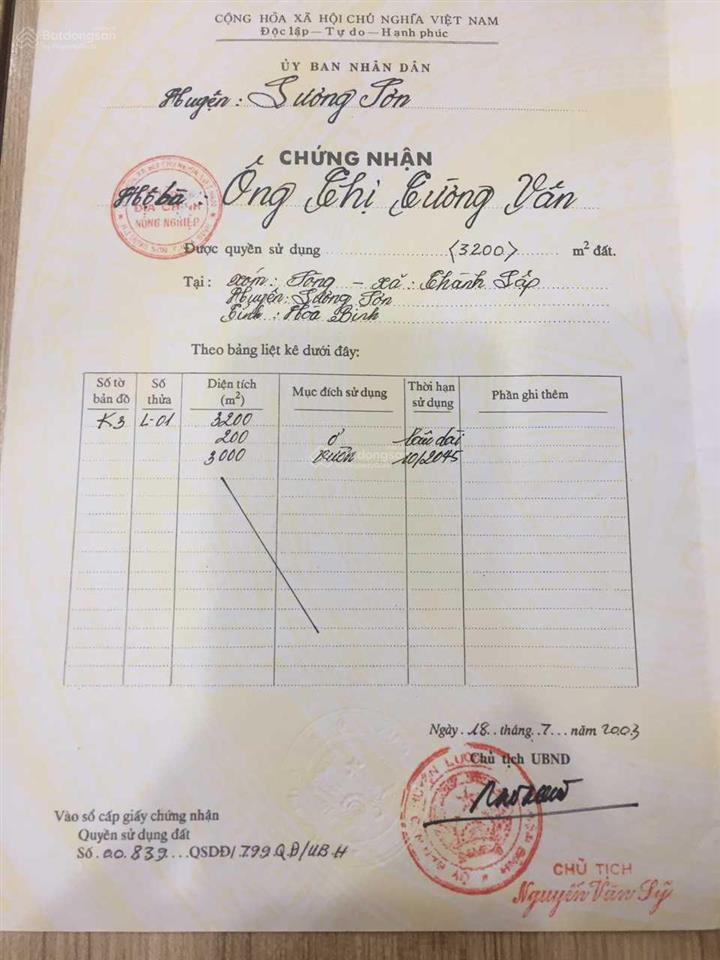 Batdongsan
CỘNG HÒA XÃ HỘI CHỦ NGHĨA VIỆT NAM
Độc lập — Tự do — Hạnh phúc
ỦY BAN NHÂN DÂN
Huyện: Lương Sơn
CHỨNG NHẬN
Hộ bà: Ông Thị Tường Vân
ĐỊA CHÍNH
NÔNG NGHIỆP
Được quyền sử dụng (3200) m² đất.
Tại: xóm: Tông - xã: Thành Lập
Huyện: Lương Sơn
Tỉnh: Hòa Bình
Theo bảng liệt kê dưới đây:
Số tờ bản đồ Số thửa Diện tích (m²) Mục đích sử dụng Thời hạn sử dụng Phần ghi thêm
K3 L-01 3200
200 ở lâu dài
3000 vườn 10/2045
Batdongsan
Ngày 18 tháng 7 năm 2003
Chủ tịch UBND
Vào sổ cấp giấy chứng nhận
Quyền sử dụng đất
Số 00.839 QSDĐ/799 QĐ/UB H
CHỦ TỊCH
Nguyễn Văn Sỹ